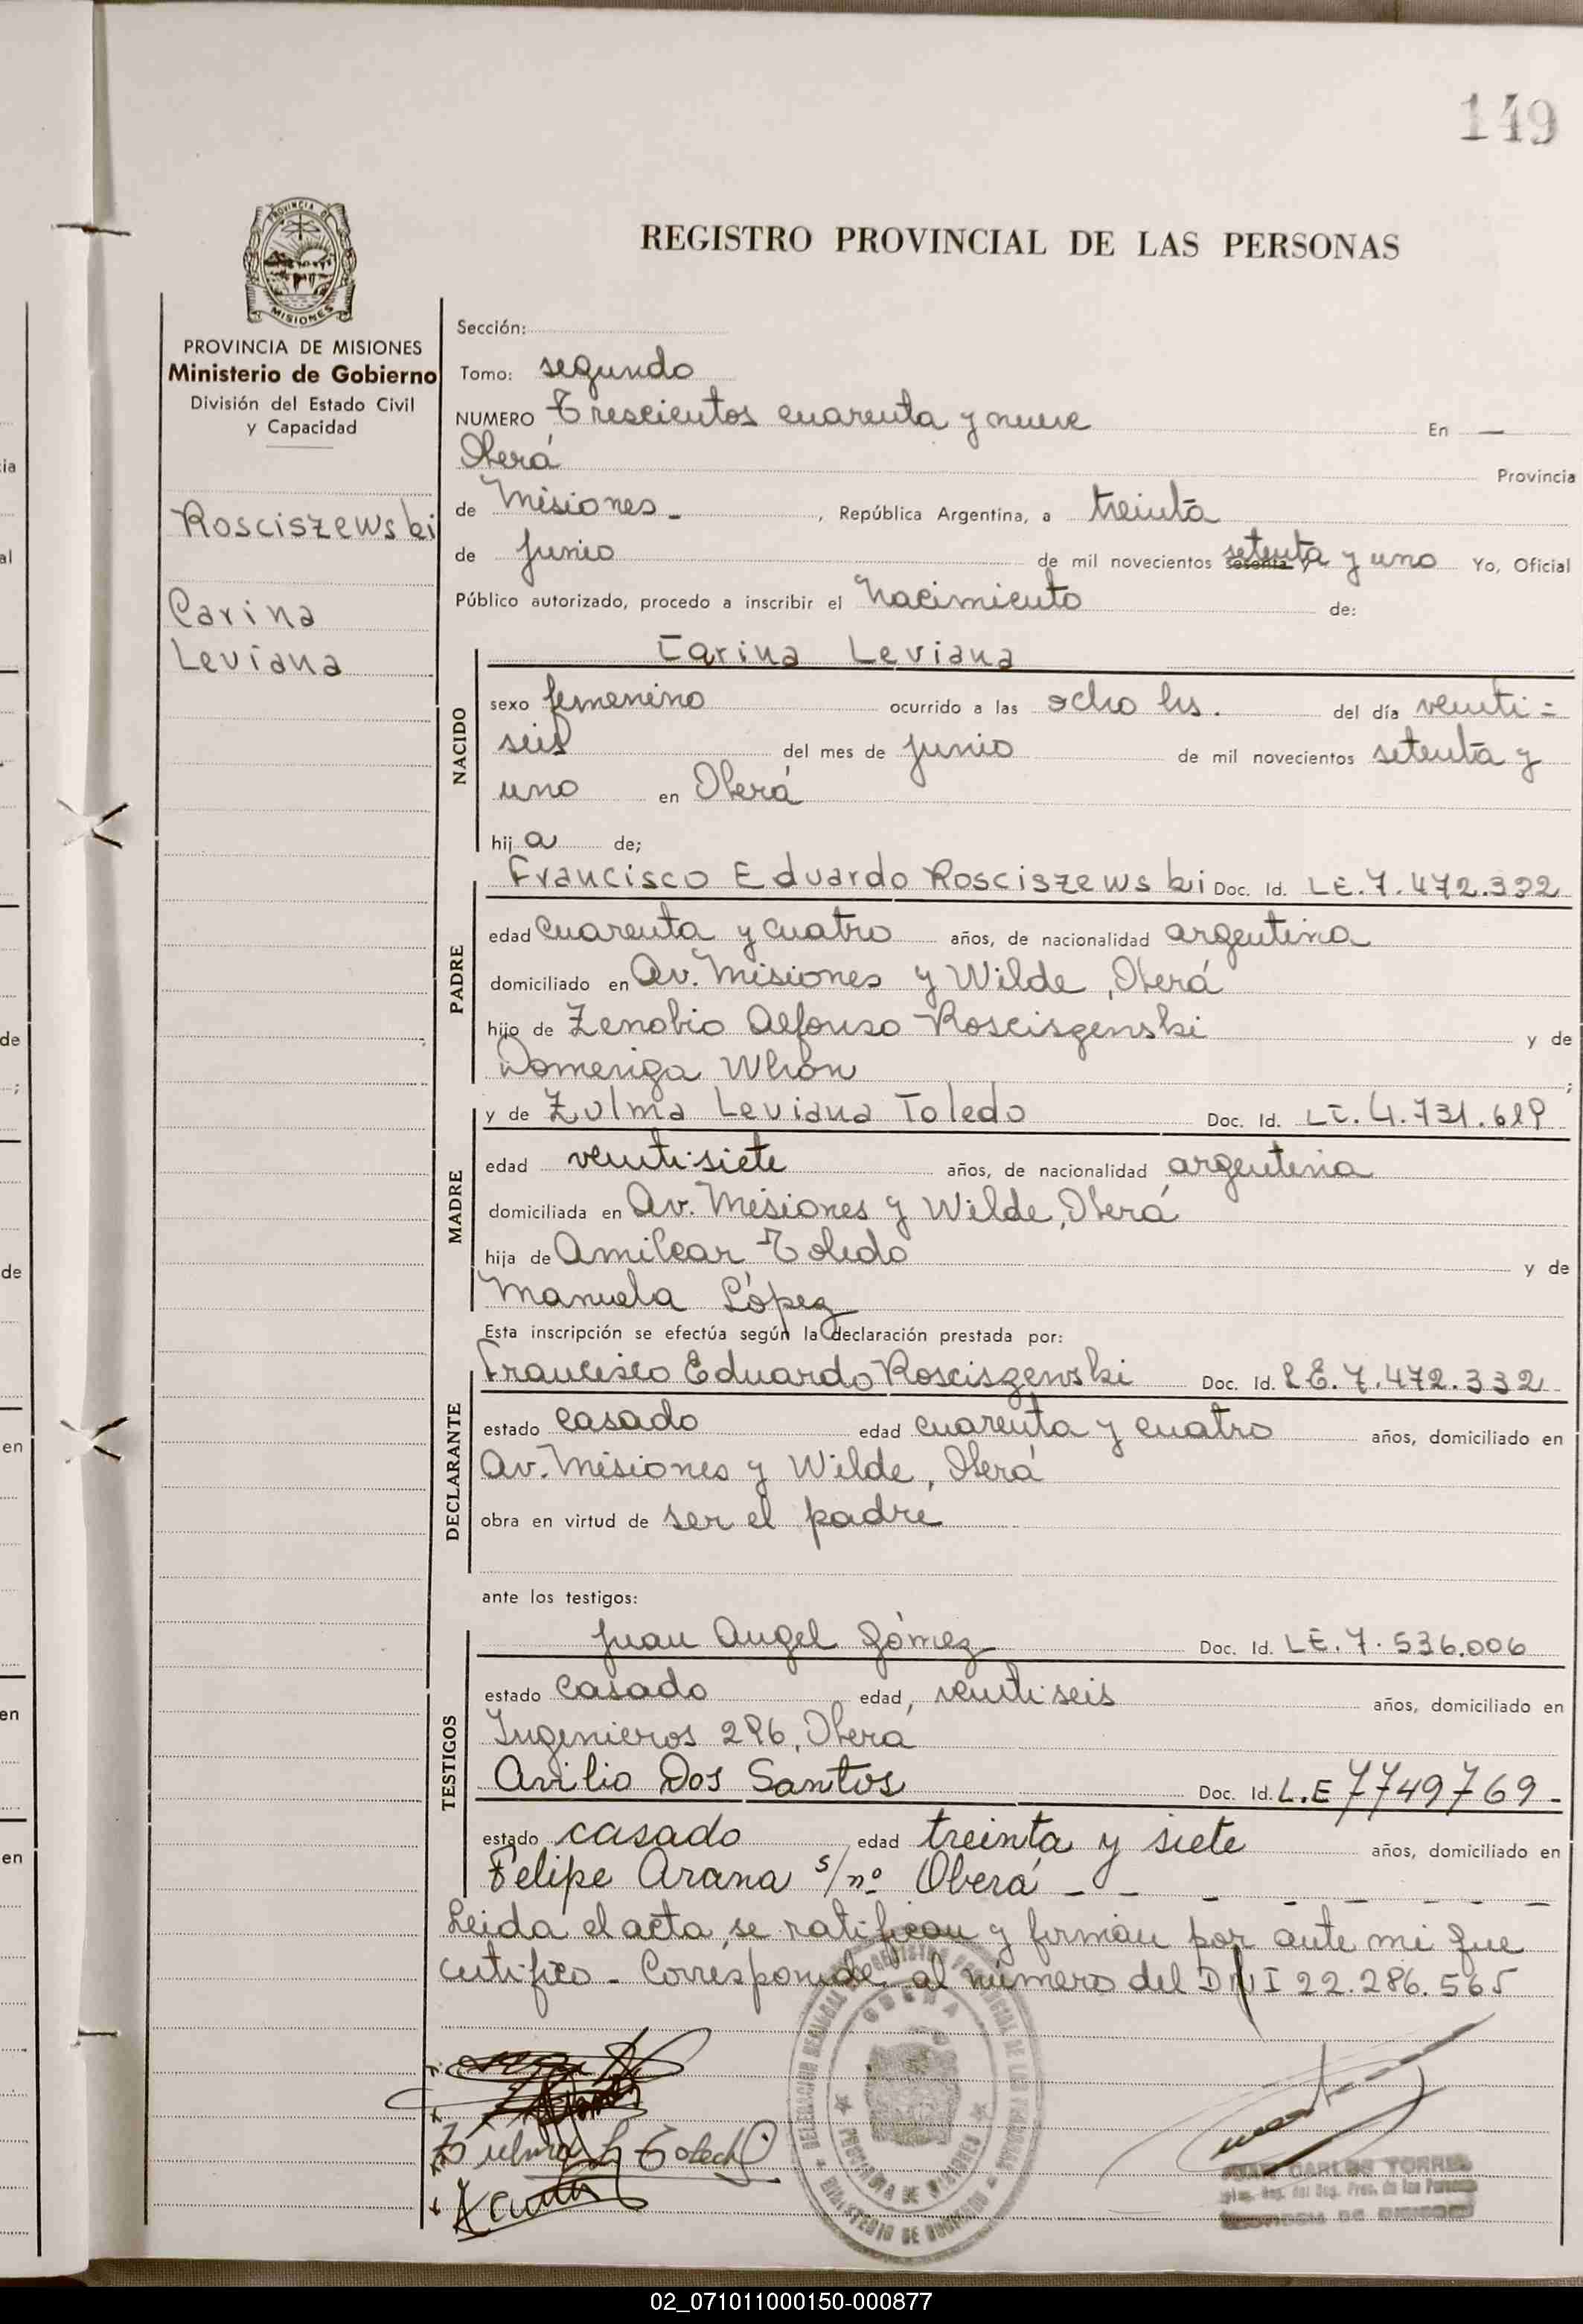 149
PROVINCIA DE
MISIONES
REGISTRO PROVINCIAL DE LAS PERSONAS
PROVINCIA DE MISIONES
Ministerio de Gobierno
División del Estado Civil
y Capacidad
Rosciszewski
Carina
Leviana
Sección:
Tomo: segundo
NUMERO Trescientos cuarenta y nueve En —
Oberá Provincia
de Misiones - , República Argentina, a treinta
de junio de mil novecientos setenta y uno Yo, Oficial
Público autorizado, procedo a inscribir el Nacimiento de:
NACIDO
Carina Leviana
sexo femenino ocurrido a las ocho hs. del día veinti=
seis del mes de junio de mil novecientos setenta y
uno en Oberá
hij a de;
PADRE
Francisco Eduardo Rosciszewski Doc. Id. LE. 7.472.332
edad cuarenta y cuatro años, de nacionalidad argentina
domiciliado en Av. Misiones y Wilde, Oberá
hijo de Zenobio Alfonso Rosciszenski y de
Domeniga Whon ;
MADRE
y de Zulma Leviana Toledo Doc. Id. LC. 4.731.619
edad veintisiete años, de nacionalidad argentina
domiciliada en Av. Misiones y Wilde, Oberá
hija de Amilcar Toledo y de
Manuela López
Esta inscripción se efectúa según la declaración prestada por:
DECLARANTE
Francisco Eduardo Rosciszenski Doc. Id. LE. 7.472.332
estado casado edad cuarenta y cuatro años, domiciliado en
Av. Misiones y Wilde, Oberá
obra en virtud de ser el padre
ante los testigos:
TESTIGOS
Juan Angel Gómez Doc. Id. LE. 7.536.006
estado casado edad, veintiseis años, domiciliado en
Ingenieros 296, Oberá
Avilio Dos Santos Doc. Id. L.E 7749769-
estado casado edad treinta y siete años, domiciliado en
Felipe Arana s/nº Oberá - -
Leida el acta, se ratifican y firman por ante mi que
certifico - Corresponde al número del DNI 22.286.565
Zulma L Toledo
OBERA
PROVINCIA DE MISIONES
MINISTERIO DE GOBIERNO
JUAN CARLOS TORRES
PROVINCIA DE MISIONES
02_071011000150-000877